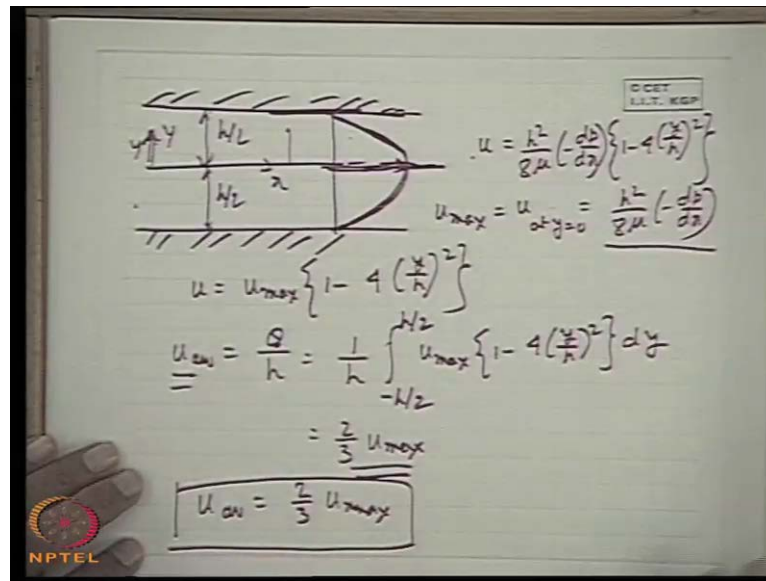 © CET
I.I.T. KGP
h/2
y
y
x
h/2
u = h²/8μ (-dp/dx) {1 - 4(y/h)²}
u_max = u_at y=0 = h²/8μ (-dp/dx)
u = u_max {1 - 4(y/h)²}
u_av = Q/h = 1/h ∫_{-h/2}^{h/2} u_max {1 - 4(y/h)²} dy
= 2/3 u_max
u_av = 2/3 u_max
NPTEL